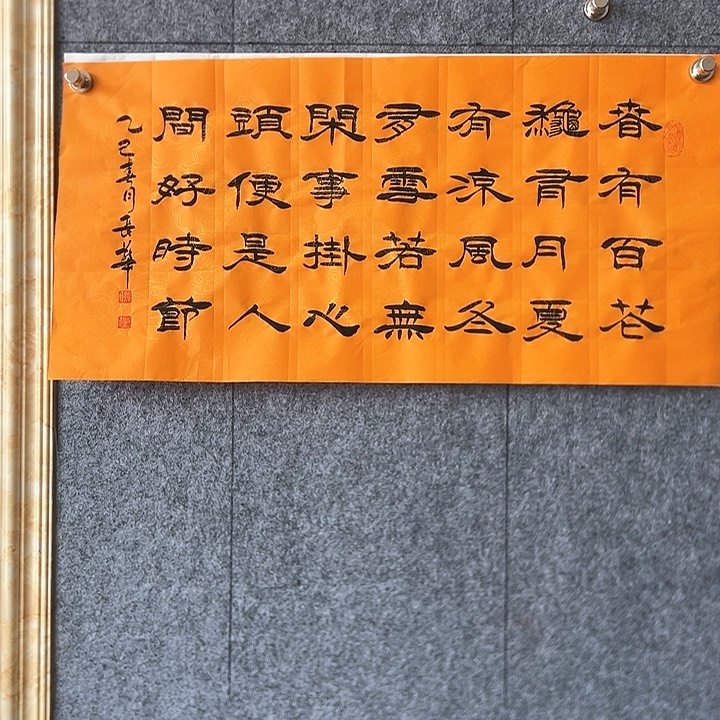 春有百花
龝有月夏
有凉風冬
有雪若無
閑事掛心
頭便是人
間好時節
乙巳春月岳華